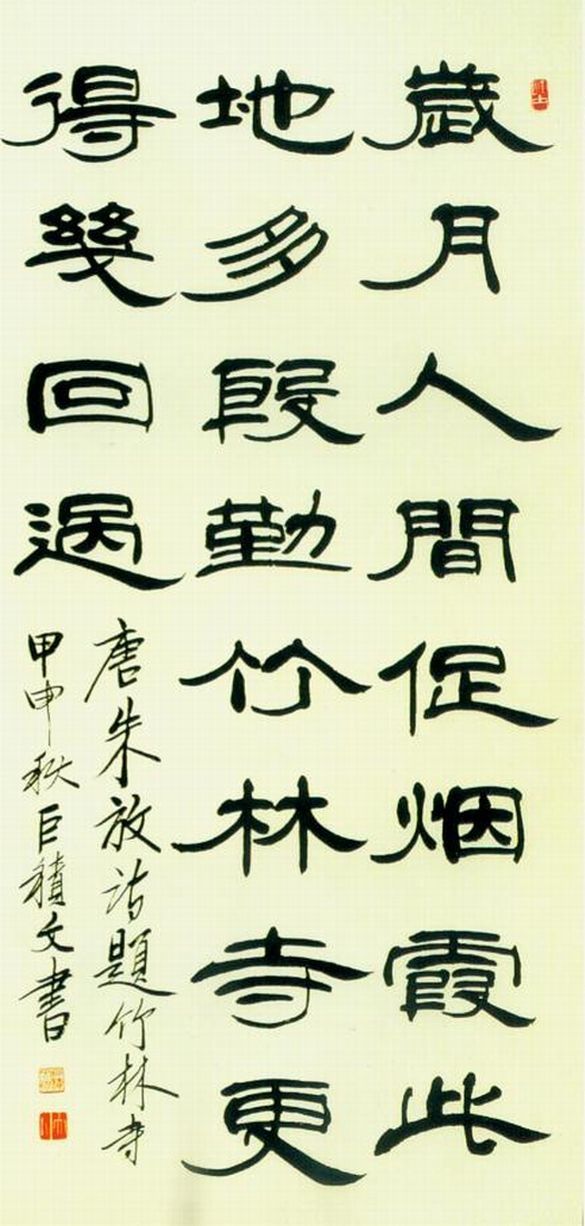 歲月人間促烟霞此
地多殷勤竹林寺更
得幾回過
唐朱放詩題竹林寺
甲申秋巨積文書